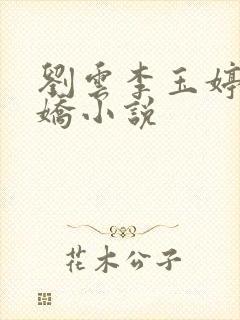 劉雲李玉婷
嬌小說
花木公子